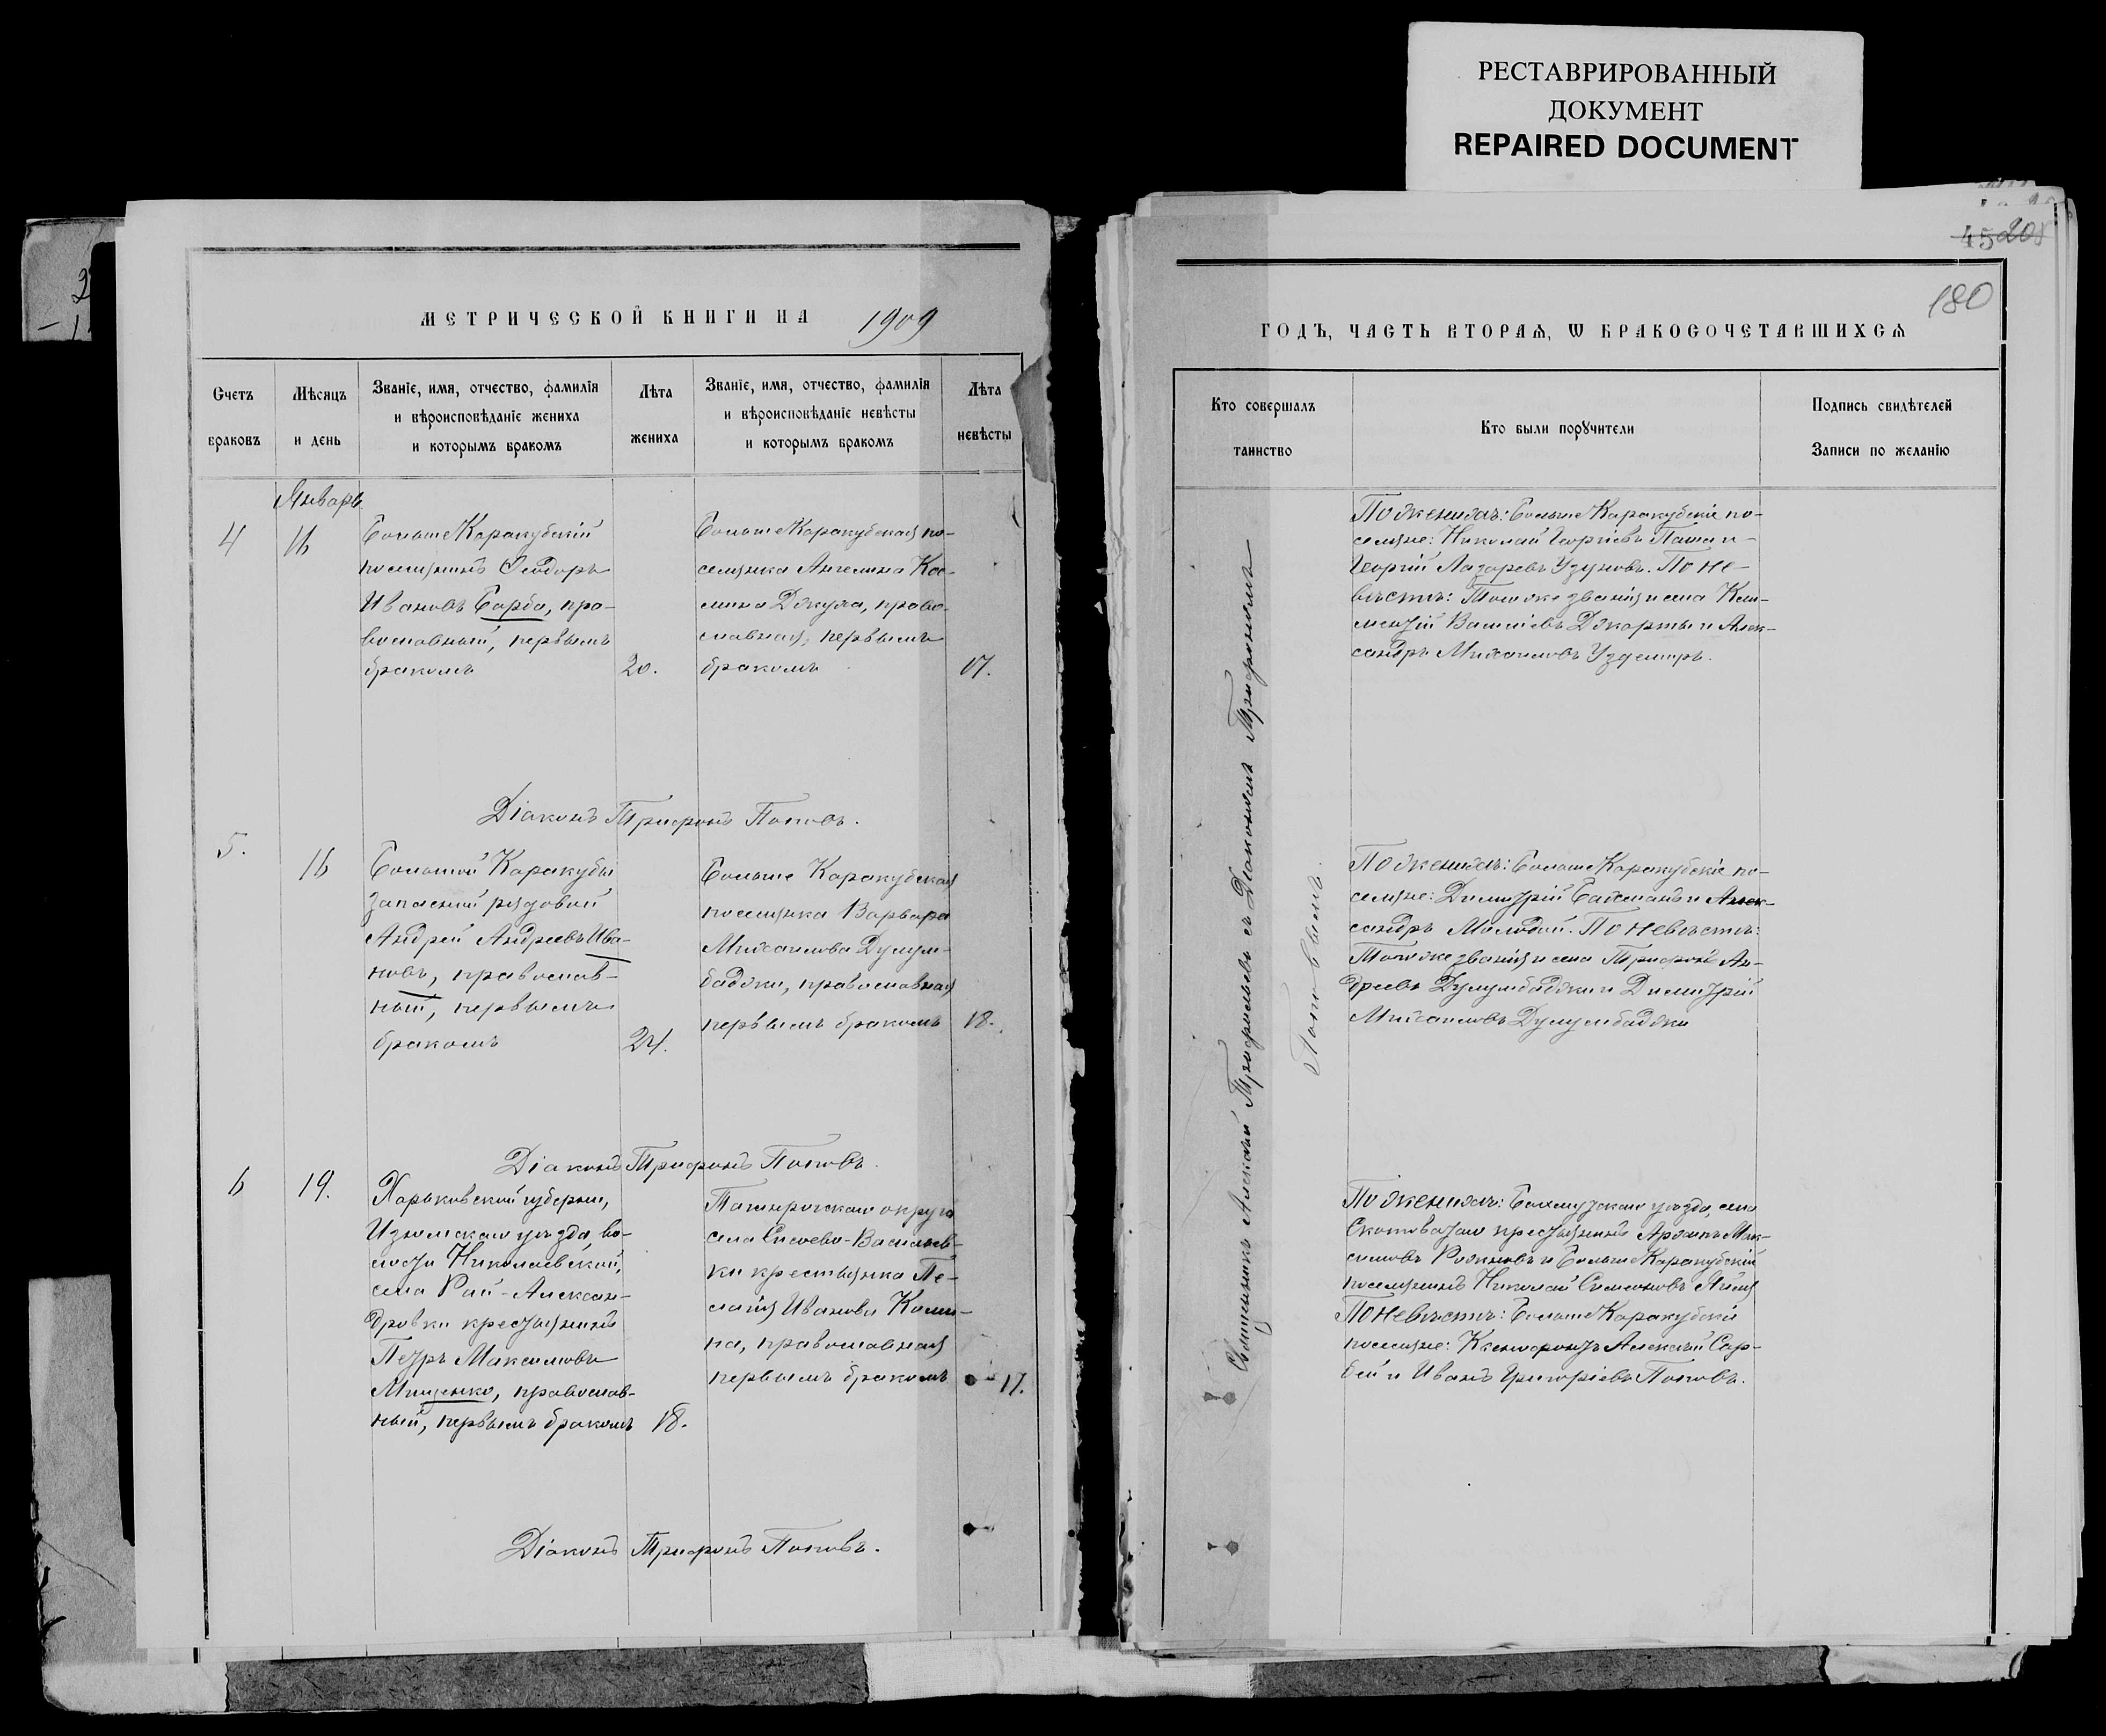 РЕСТАВРИРОВАННЫЙ
ДОКУМЕНТ
REPAIRED DOCUMENT
МЕТРИЧЕСКОЙ КНИГИ НА 1909
Счетъ
браковъ
Мѣсяцъ
и день
Званіе, имя, отчество, фамилія
и вѣроисповѣданіе жениха
и которымъ бракомъ
Лѣта
жениха
Званіе, имя, отчество, фамилія
и вѣроисповѣданіе невѣсты
и которымъ бракомъ
Лѣта
невѣсты
Январь
4
16
Больше Каракубскій
поселянинъ Ѳеодоръ
Ивановъ Барба, пра-
вославный, первымъ
бракомъ
20.
Больше Каракубская по-
селянка Ангелина Кос-
мина Джула, право-
славная, первымъ
бракомъ
17.
Діаконъ Трифонъ Поповъ.
5.
16
Большой Каракубы
запасный рядовой
Андрей Андреевъ Ива-
новъ, православ-
ный, первымъ
бракомъ
24.
Больше Каракубская
поселянка Варвара
Михаилова Дулум-
баджи, православная
первымъ бракомъ
18.
Діаконъ Трифонъ Поповъ.
6
19.
Харьковской губерніи,
Изюмскаго уѣзда, во-
лости Николаевской,
села Рай-Алексан-
дровки крестьянинъ
Петръ Максимовъ
Мищенко, православ-
ный, первымъ бракомъ
18.
Таганрогскаго округа
села Сысоево-Васильев-
ки крестьянка Пе-
лагія Иванова Кали-
на, православная
первымъ бракомъ
17.
Діаконъ Трифонъ Поповъ.
45 20
180
ГОДЪ, ЧАСТЬ ВТОРАѦ, Ѡ БРАКОСОЧЕТАВШИХСѦ
Кто совершалъ
таинство
Кто были порꙋчители
Подпись свидѣтелей
Записи по желанію
Священникъ Алексій Трофимьевъ съ Діакономъ Трифономъ
Поповымъ.
По женихѣ: Больше Каракубскіе по-
селяне: Николай Георгіевъ Паша и
Георгій Лазаревъ Узуновъ. По не-
вѣстѣ: Того же званія и села Кли-
ментій Василіевъ Джарты и Алек-
сандръ Михаиловъ Уздемиръ.
По женихѣ: Больше Каракубскіе по-
селяне: Димитрій Бахчиванъ и Алек-
сандръ Молодой. По невѣстѣ:
Того же званія и села Трифонъ Ан-
дреевъ Дулумбаджи и Димитрій
Михаиловъ Дулумбаджи
По женихѣ: Бахмутскаго уѣзда, села
Скотоватаго крестьянинъ Архипъ Мак-
симовъ Рожновъ и Больше Каракубскій
поселянинъ Николай Симоновъ
По невѣстѣ: Больше Каракубскіе
поселяне: Ксенофонтъ Алексѣй Сар-
бей и Иванъ Григоріевъ Поповъ.